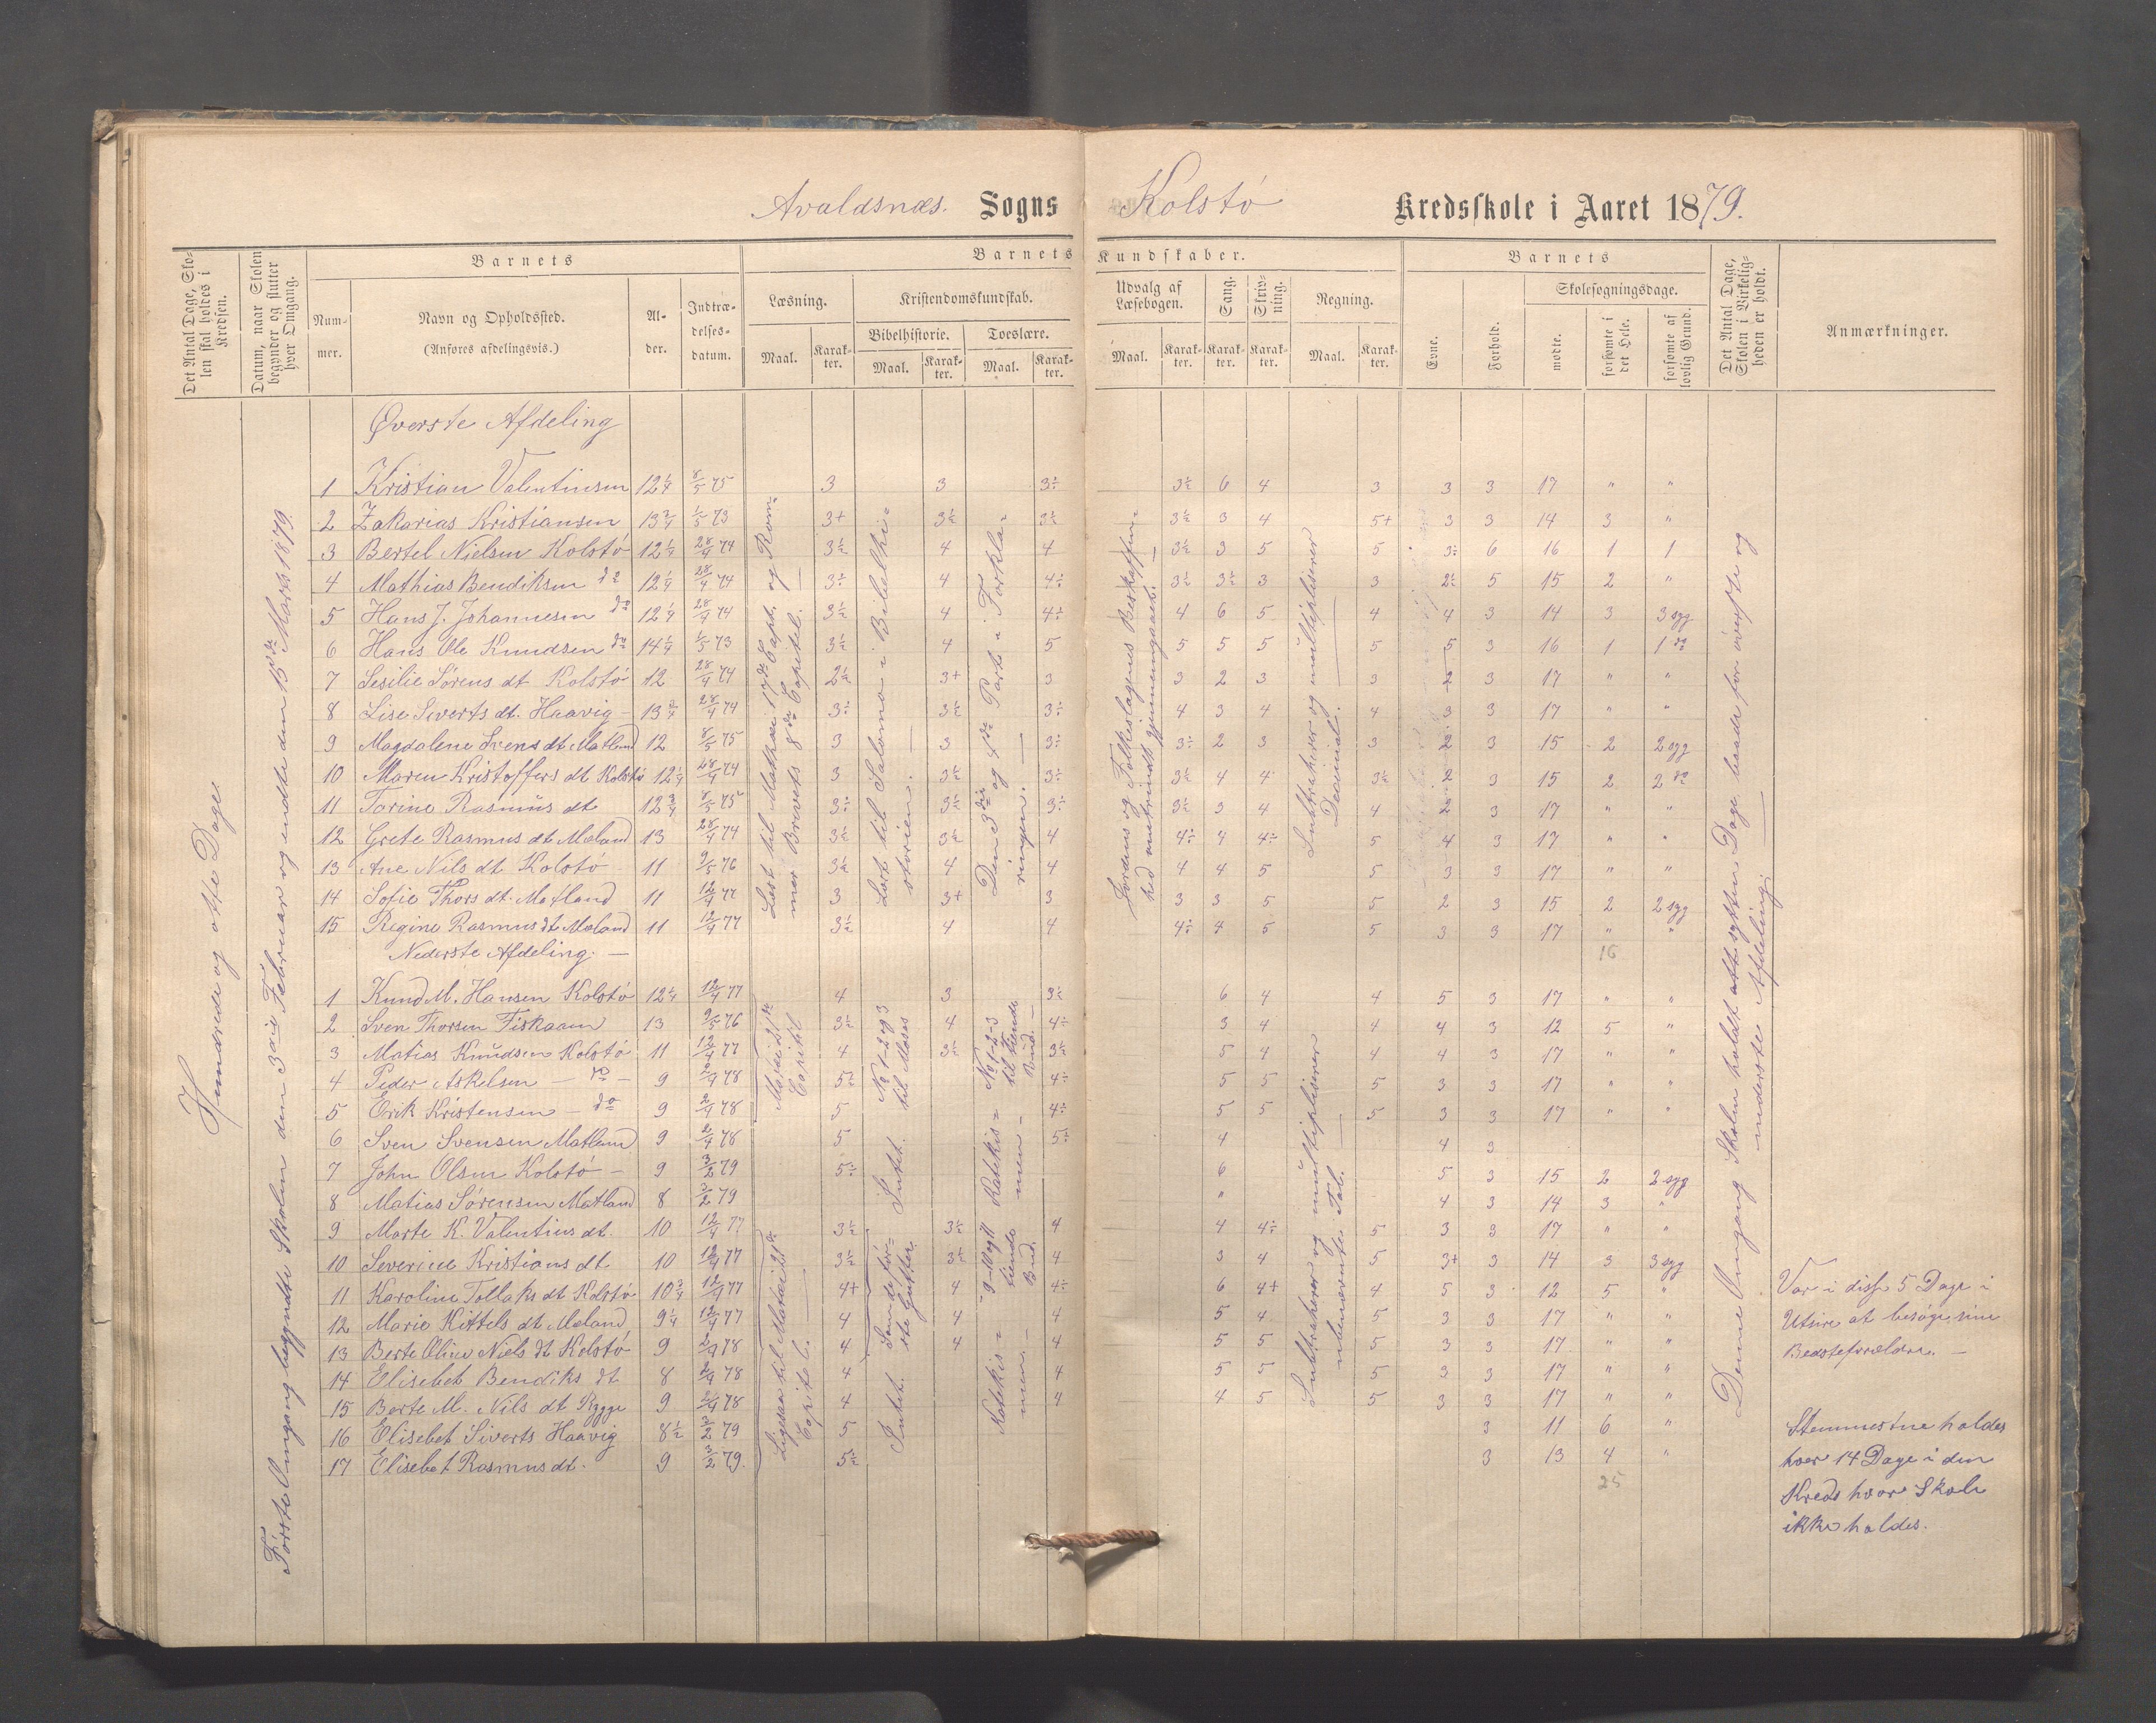 Avaldsnæs. Sogns Kolstø Kredsskole i Aaret 1879.
Det Antal Dage, Skolen skal holdes i Kredsen.
Datum, naar Skolen begynder og slutter hver Omgang.
Barnets
Nummer.
Navn og Opholdssted.
(Anføres afdelingsvis.)
Alder.
Indtrædelsesdatum.
Barnets Kundskaber.
Læsning.
Maal.
Karakter.
Kristendomskundskab.
Bibelhistorie.
Maal.
Karakter.
Troeslære.
Maal.
Karakter.
Udvalg af Læsebogen.
Maal.
Karakter.
Sang.
Karakter.
Skrivning.
Karakter.
Regning.
Maal.
Karakter.
Barnets
Evne.
Forhold.
Skolesøgningsdage.
mødte.
forsømte i det Hele.
forsømte af lovlig Grund.
Det Antal Dage, Skolen i Virkeligheden er holdt.
Anmærkninger.
Hundrede og otte Dage
Første Omgang begyndte Skolen den 3die Februar og endte den 15de Marts 1879.
Øverste Afdeling
1 Kristian Valentinsen 12 1/4 8/5 75 3 3 3÷ 3½ 6 4 3 3 3 17 " "
2 Zakarias Kristiansen 13 3/4 1/5 73 3+ 3½ 3½ 3½ 3 4 5+ 3 3 14 3 "
3 Bertel Nielsen Kolstø 12 1/4 28/4 74 3½ 4 4 3½ 3 5 5 3÷ 6 16 1 1
4 Mathias Bendiksen do 12 1/4 28/4 74 3÷ 4 4÷ 3½ 3½ 3 3 2½ 5 15 2 "
5 Hans J. Johannesen do 12 1/4 28/4 74 3½ 4 4÷ 4 6 5 4 4 3 14 3 3 syg
6 Hans Ole Knudsen do 14 1/4 1/5 73 3½ 4 5 5 5 5 5 5 3 16 1 1 do
7 Sesilie Sørens dt Kolstø 12 28/4 74 2½ 3+ 3 3 2 3 3 2 3 17 " "
8 Lise Siverts dt. Haavig 13 3/4 28/4 74 3÷ 3½ 3÷ 4 3 4 4 3 3 17 " "
9 Magdalene Svens dt Matland 12 8/5 75 3 3 3÷ 3÷ 2 3 3 2 3 15 2 2 syg
10 Maren Kristoffers dt Kolstø 12 1/4 28/4 74 3 3½ 3÷ 3½ 4 4 3½ 2 3 15 2 2 do
11 Torine Rasmus dt 12 3/4 8/5 75 3÷ 3½ 3÷ 3½ 3 4 4 2 3 17 " "
12 Grete Rasmus dt Mæland 13 28/4 74 3½ 3½ 4 4÷ 4 4÷ 5 4 3 17 " "
13 Ane Nils dt Kolstø 11 9/5 76 3½ 4 4 4 4 5 5 3 3 17 " "
14 Sofie Thors dt. Matland 11 12/4 77 3 3+ 3 3 3 5 5 2 3 15 2 2 syg
15 Regine Rasmus dt Mæland 11 12/4 77 3½ 4 4 4÷ 4 5 5 3 3 17 " "
16
Læst til Mathæi 17de Capt. og Romernes Brevets 8de Capitel.
Læst til Salomo i Bibelhistorien.
Den 3die og 4de Part i Forklaringen.
Jordens og Folkeslagenes Beskaffenhed omtrindt gjennemgaaet.
Subtraherer og multipliserer Decimal.
Nederste Afdeling.
1 Knud M. Hansen Kolstø 12 1/4 12/4 77 4 3 3½ 6 4 4 5 3 17 " "
2 Sven Thorsen Fiskaaen 13 9/5 76 3½ 4 4÷ 3 4 4 4 3 12 5 "
3 Matias Knudsen Kolstø 11 12/4 77 4 3½ 3½ 5 4 4 4 3 17 " "
4 Peder Askelsen do 9 2/4 78 5½ 4÷ 5 5 5 3 3 17 " "
5 Erik Kristensen do 9 2/4 78 5 4÷ 5 5 5 3 3 17 " "
6 Sven Svensen Matland 9 2/4 78 5 5÷ 4 4 3
7 John Olsen Kolstø 9 3/2 79 5÷ 6 5 3 15 2 2 syg
8 Matias Sørensen Matland 8 3/2 79 " 4 3 14 3 "
9 Marte K. Valentins dt. 10 12/4 77 3½ 3½ 4 4 4÷ 5 3 3 17 " "
10 Severine Kristians dt 10 12/4 77 3½ 3½ 4 3 4 5 3+ 3 14 3 3 syg
11 Karoline Tollaks dt Kolstø 10 3/4 12/4 77 4+ 4 4÷ 6 4+ 4 5 3 12 5 "
12 Marie Kittels dt Mæland 9 1/4 12/4 77 4 4 4 5 4 5 3 3 17 " "
13 Berte Oline Niels dt Kolstø 9 2/4 78 4 4 4 5 5 5 3 3 17 " "
14 Elisebet Bendiks dt 8 2/4 78 4 4 5 5 5 3 3 17 " "
15 Berte M. Nils dt Rygge 9 2/4 78 4 4 4 5 5 3 3 17 " "
16 Elisebet Siverts Haavig 8½ 3/2 79 5 3 11 6 "
17 Elisebet Rasmus dt. 9 3/2 79. 5½ 3 13 4 "
25
Capitel
No 1-2 og 3 til Moses
Intet.
No 1-2-3 til tiende Bud.
Katekismen
Ligesaa til Mathæi 21de Capitel.
Samme første
Intet.
9-10 og 11 tiende Bud.
Katekismen.
Subtraherer og multipliserer ubenævnte Tal.
Denne Omgang Skolen holdt atten Dage baade for øverste og underste Afdeling.
Var i disse 5 Dage i
Utsire at besøge sine
Bedsteforældre.
Stemmestue holdes
hver 14 Dage i den
Kreds hvor Skole
ikke holdes.